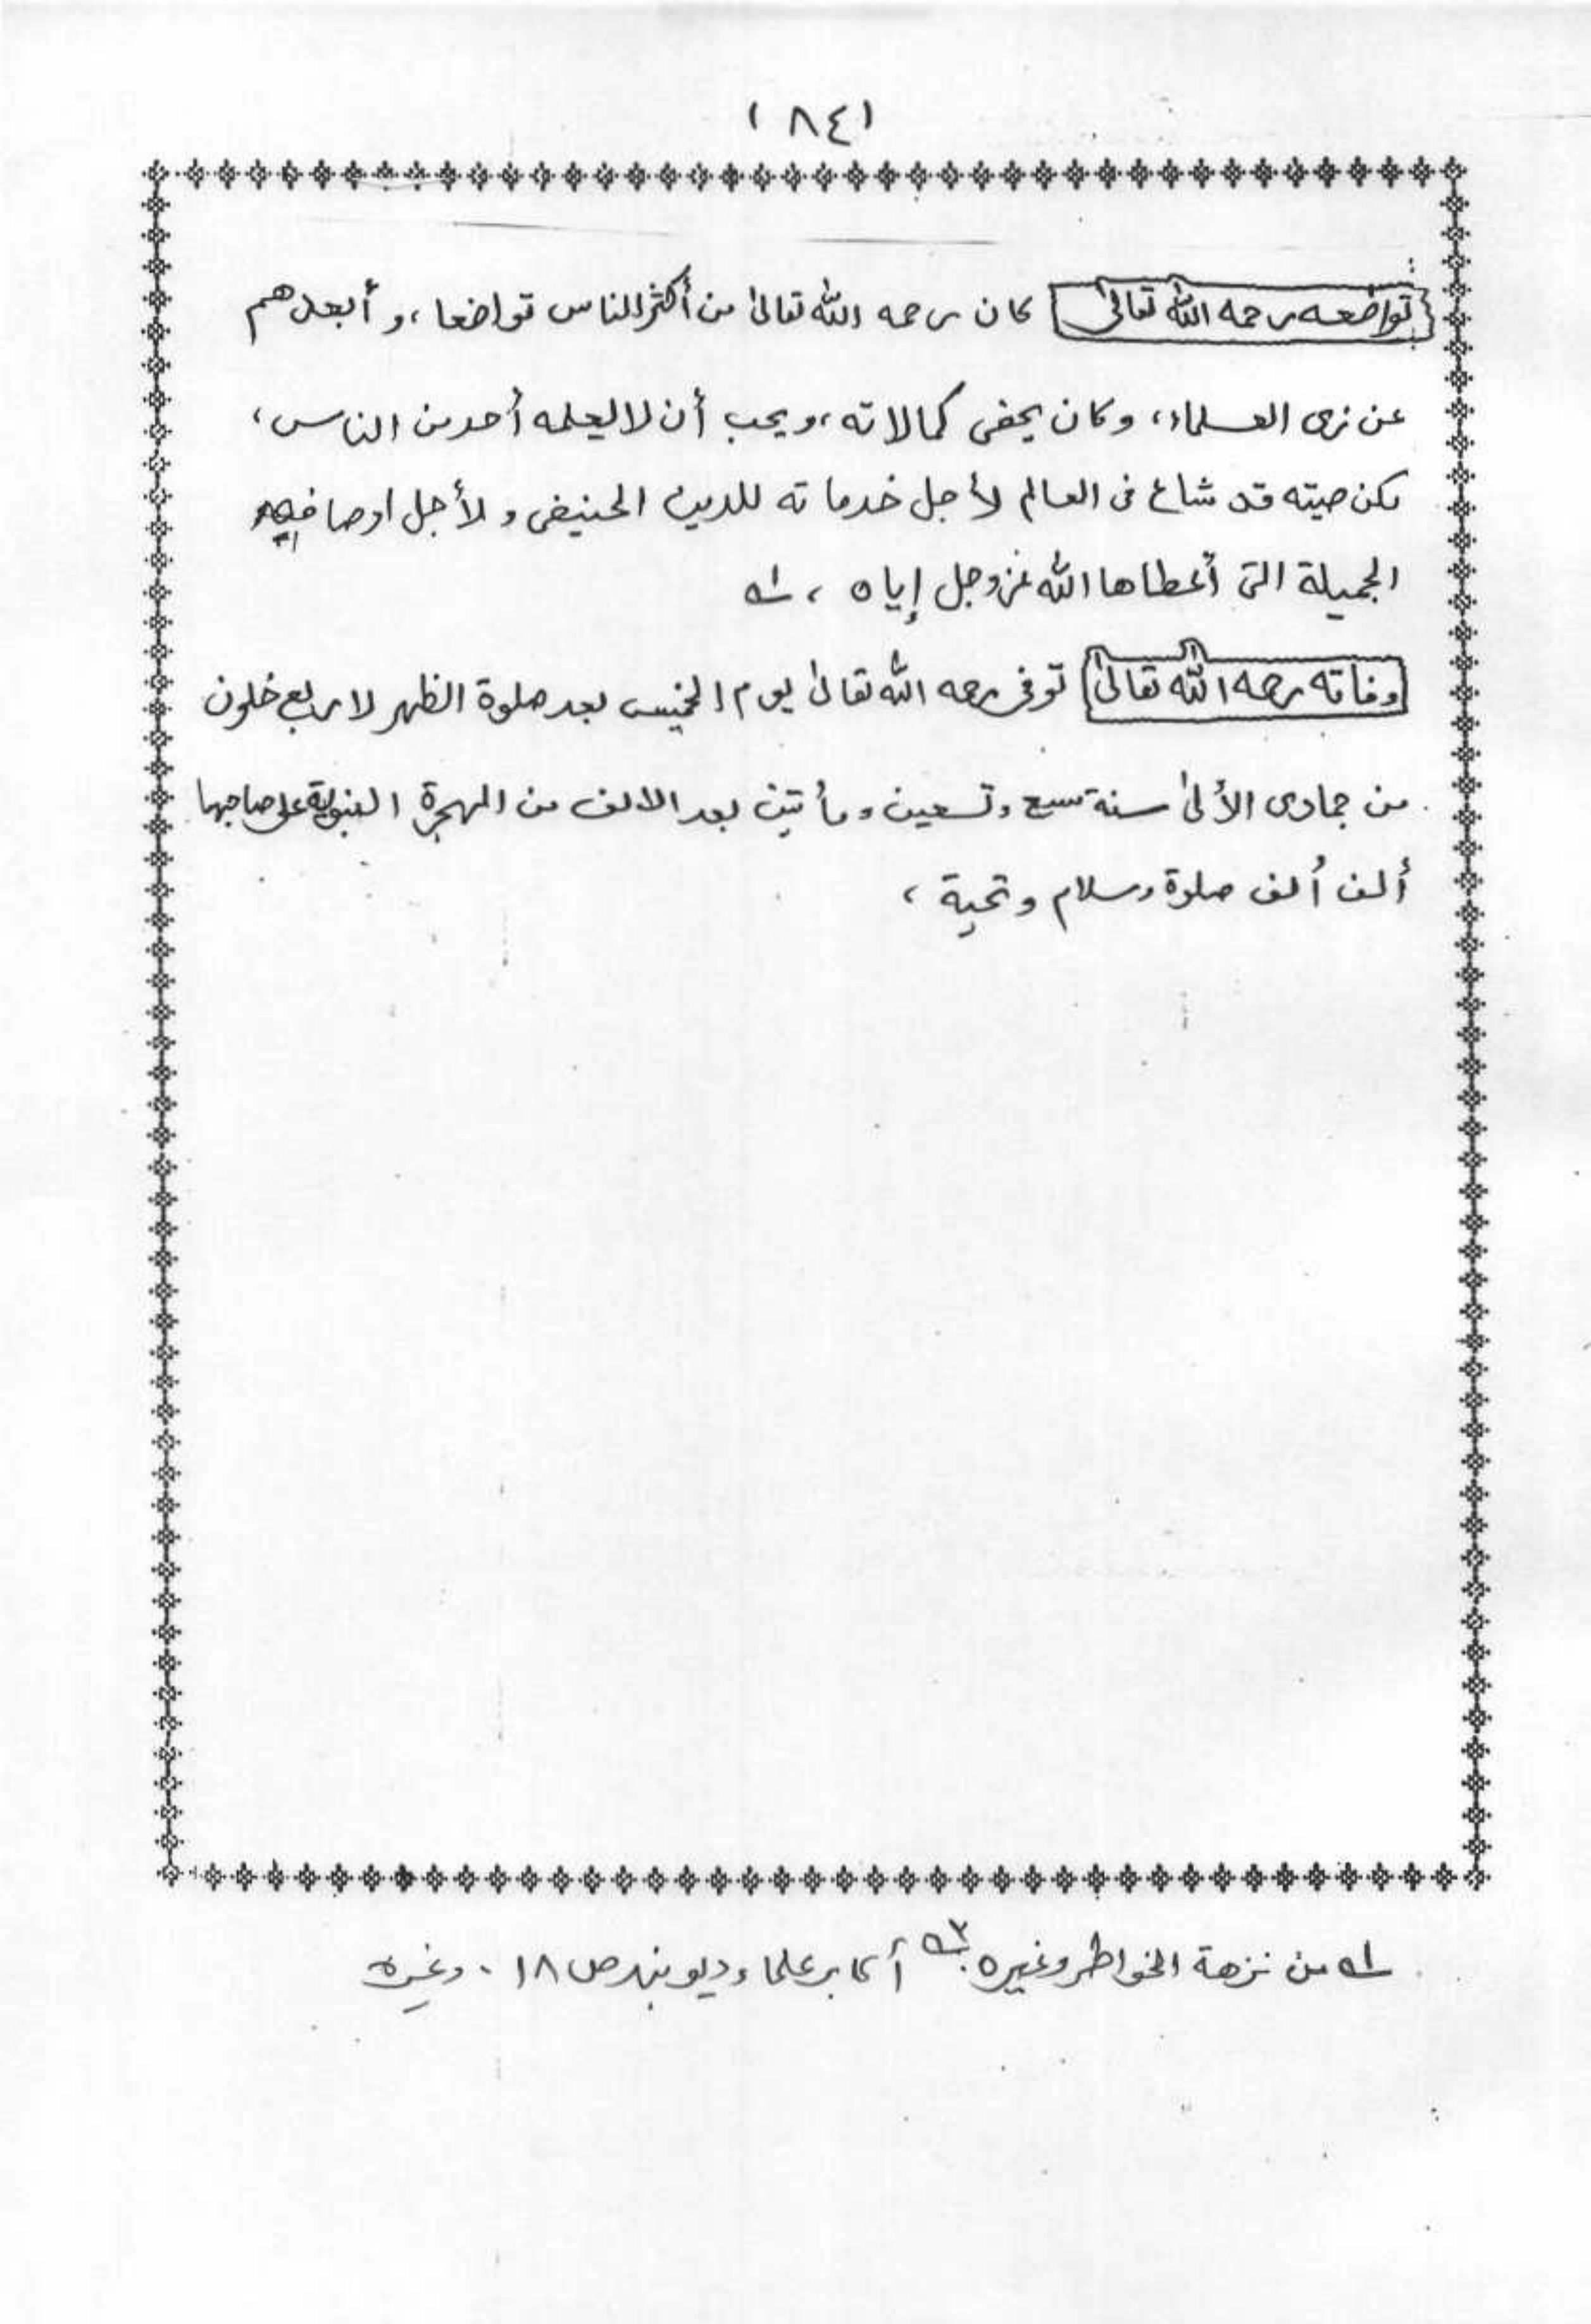 (٨٤)
تواضعه رحمه الله تعالىٰ كان رحمه الله تعالىٰ من أكثر الناس تواضعا، و أبعدهم
عن زى العلماء، وكان يخفى كمالاته، ويحب أن لا يعلمه أحد من الناس،
لكن صيته قد شاع فى العالم لأجل خدماته للدين الحنيفى و لأجل اوصافه
الجميلة التى أعطاها الله عز وجل إياه، ١ه
وفاته رحمه الله تعالىٰ توفى رحمه الله تعالىٰ يوم الخميس بعد صلوة الظهر لاربع خلون
من جمادى الألىٰ سنة سبع وتسعين ومأتين بعد الالف من الهجرة النبوية على صاحبها
ألف ألف صلوة وسلام و تحية،
١ه من نزهة الخواطر وغيره ٢ه أكابر علماء ديوبند ص ١٨. وغيره